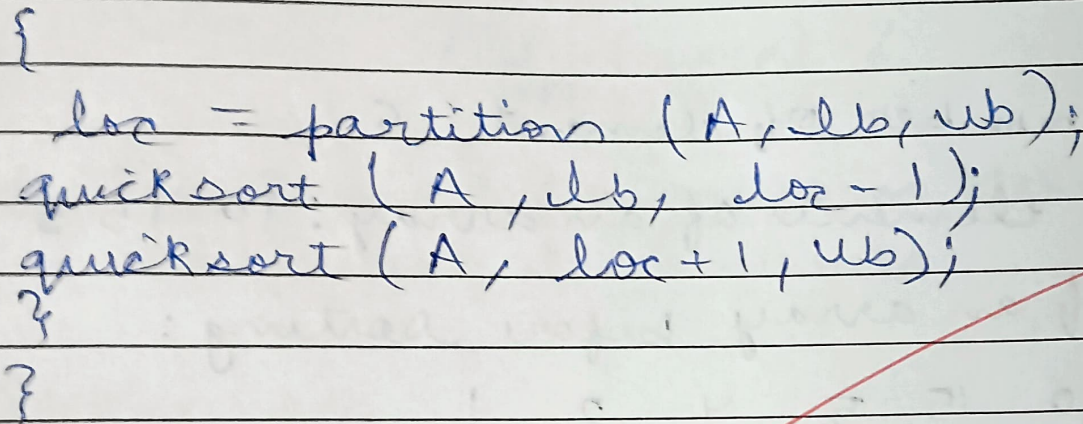 {
loc = partition (A, lb, ub);
quicksort (A, lb, loc - 1);
quicksort (A, loc + 1, ub);
}
}